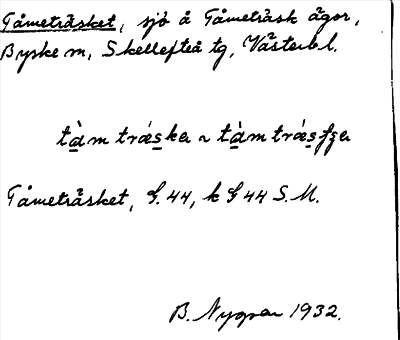 Tåmeträsket, sjö å Tåmeträsk ägor,
Byske sn, Skellefteå tg, Västerb l.
tàm trǽska ~ tàm trǽsʃʒa
Tåmeträsket, G. 44, k G 44 S.M.
B. Nygren 1932.